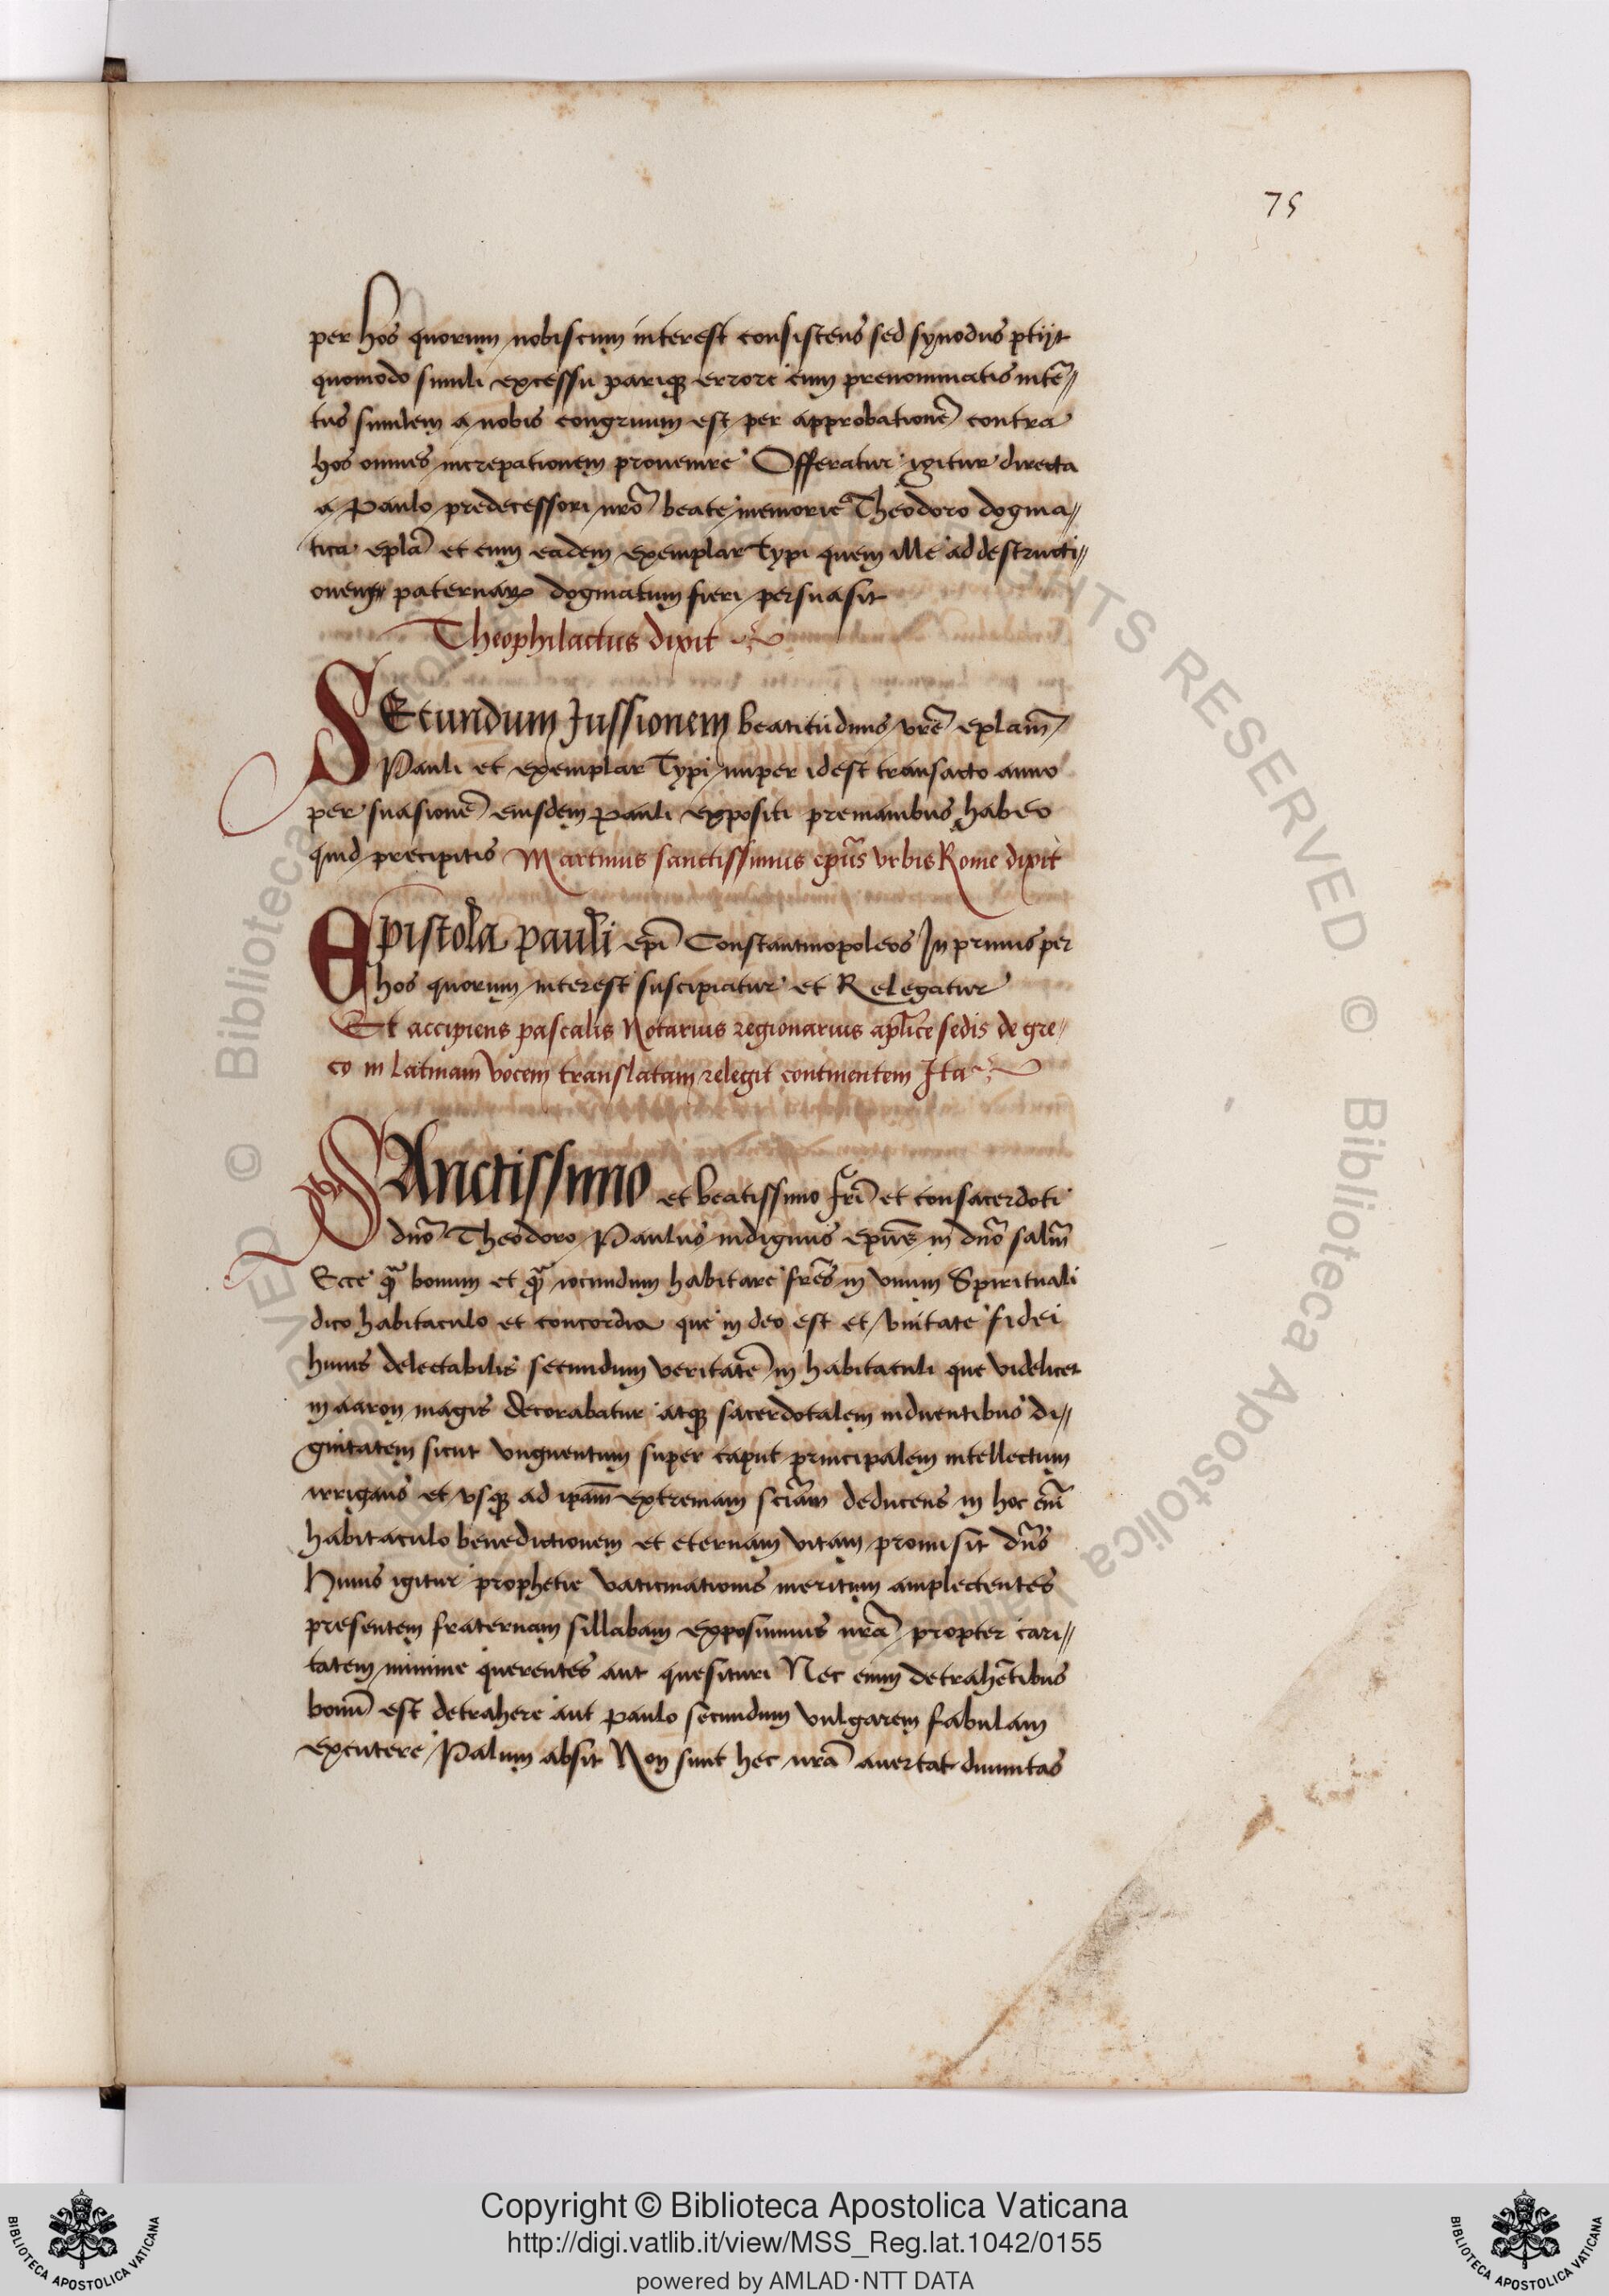 75
per hos quorum nobiscum interest consistens sed synodus ptijt
quomodo simili excessu pariqȝ errore cum prenominatis intē//
tus similem a nobis congruum est per approbationē contra
hos omnes increpationem prouenire Offeratur igitur directa
a Paulo predecessori nr̃o beate memorie Theodoro dogma//
tica epl̃a et cum eadem exemplar Typi quem ille ad destructi//
onem paternaꝝ dogmatum fieri persuasit
Theophilactus dixit
SEcundum Jussionem beatitudinis vr̃e eplam̃
Pauli et exemplar Typi nuper idest transacto anno
per suasionē eiusdem Pauli expositi premanibus habeo
quid precipitis Martinus sanctissimus ep̃us vrbis Rome dixit
Epistola pauli ep̃i Constantinopoleos In primis per
hos quorum interest suscipiatur et Relegatur
Et accipiens pascalis Notarius regionarius apl̃ice sedis de gre//
co in Latinam vocem translatam relegit continentem Ita
SAnctissimo et beatissimo fr̃i et consacerdoti
dño Theodoro Paulus indignus ep̃us in dño salm̃
Ecce q̃ȝ bonum et q̃ȝ iocundum habitare fr̃es in vnum Spirituali
dico habitaculo et concordia que in deo est et vnitate fidei
huius delectabilis secundum veritatē in habitaculi que videlicet
in aaron magis decorabatur atqȝ sacerdotalem induentibus di//
gnitatem sicut vnguentum super caput principalem intellectum
irrigans et vsqȝ ad ipam̃ extremam sciam̃ deducens in hoc eni̅
habitaculo benedictionem et eternam vitam promisit dñs
Huius igitur prophetie vaticinationis meritum amplectentes
presentem fraternam sillabam exposuimus nr̃a propter cari//
tatem minime querentes aut quesituri Nec enim detrahētibus
bonū est detrahere aut paulo secundum vulgarem fabulam
excutere Palum absit Non sunt hec nr̃a auertat diuinitas
Copyright © Biblioteca Apostolica Vaticana
http://digi.vatlib.it/view/MSS_Reg.lat.1042/0155
powered by AMLAD·NTT DATA
BIBLIOTECA APOSTOLICA VATICANA
BIBLIOTECA APOSTOLICA VATICANA